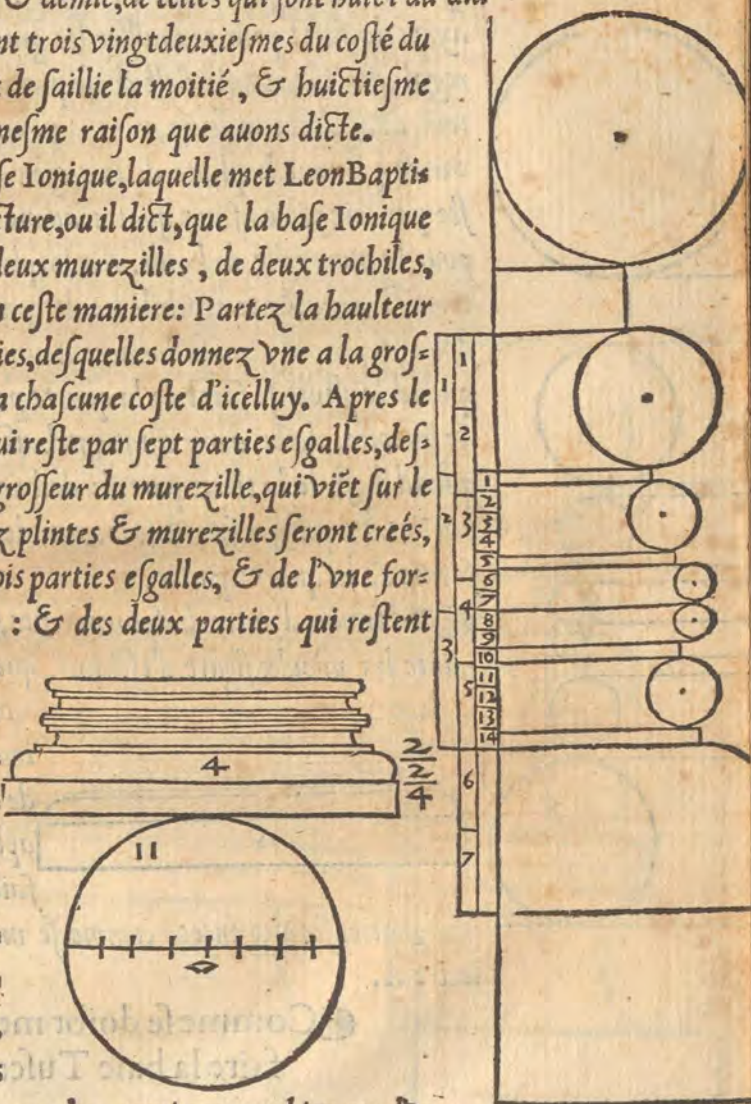 & demie, de celles qui ſont
nt trois vingtdeuxieſmes du coſté du
de ſaillie la moitié, & huictieſme
meſme raiſon que auons dicte.
ſe Ionique, laquelle met LeonBaptis
cture, ou il dict, que la baſe Ionique
deux murezilles, de deux trochiles,
n ceſte maniere: Partez la haulteur
ies, deſquelles donnez vne a la groſ⸗
a chaſcune coſte d'icelluy. Apres le
ui reſte par ſept parties eſgalles, deſ⸗
groſſeur du murezille, qui viēt ſur le
z plintes & murezilles ſeront creés,
ois parties eſgalles, & de l'vne for⸗
: & des deux parties qui reſtent
1
2
3
1
2
3
4
5
6
7
1
2
3
4
5
6
7
8
9
10
11
12
13
14
4
2
2
4
11